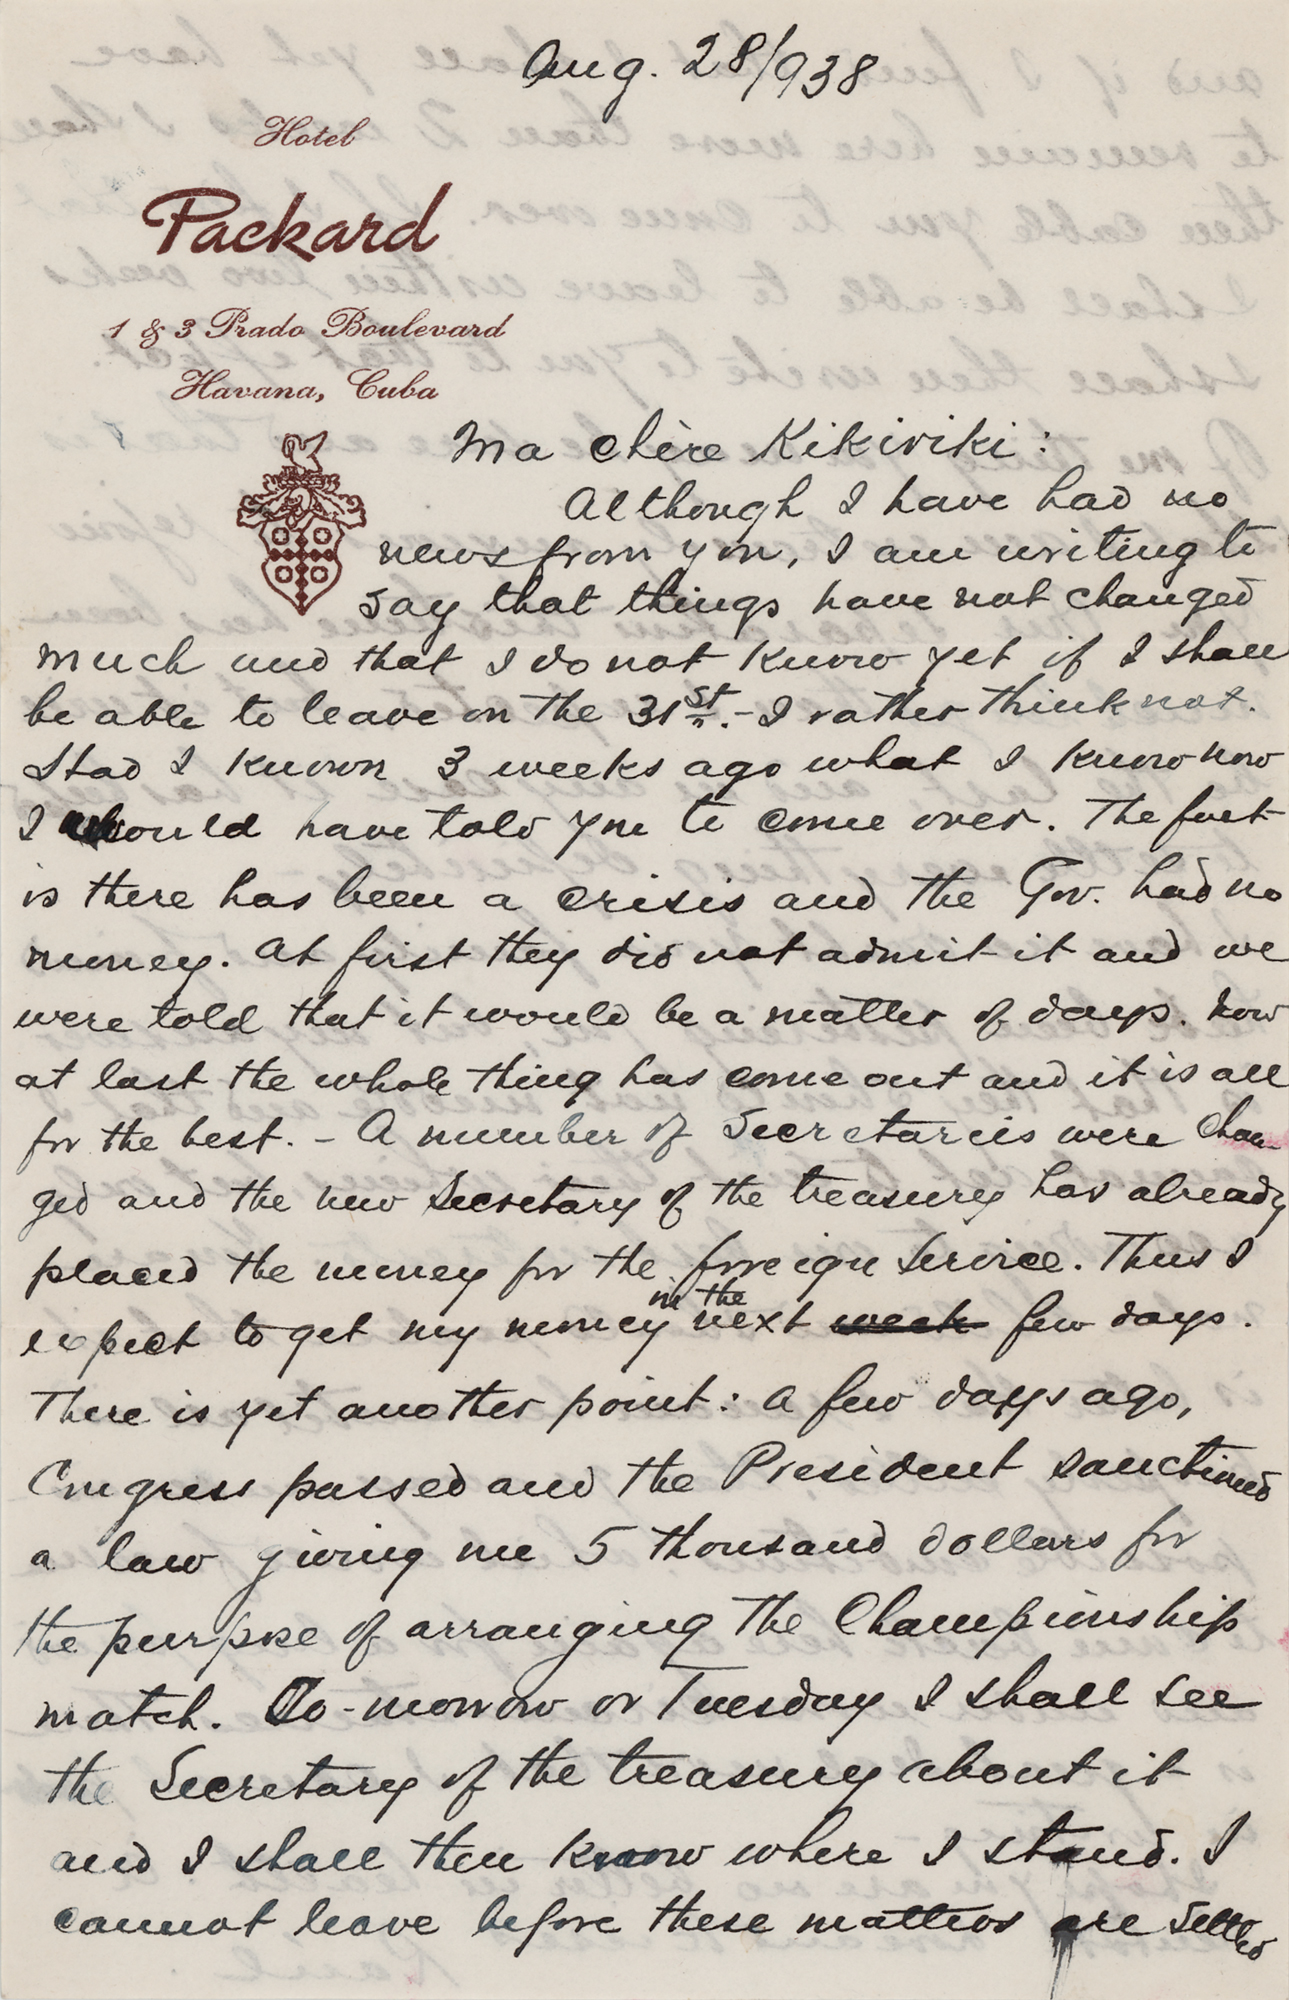 Aug. 28/938
Hotel
Packard
1 & 3 Prado Boulevard
Havana, Cuba
Ma chère Kikiriki:
Although I have had no
news from you, I am writing to
say that things have not changed
much and that I do not know yet if I shall
be able to leave on the 31st.- I rather think not.
Had I known 3 weeks ago what I know now
I would have told you to come over. The fact
is there has been a crisis and the Gov. had no
money. At first they did not admit it and we
were told that it would be a matter of days. Now
at last the whole thing has come out and it is all
for the best. - A number of Secretaries were chan-
ged and the new Secretary of the treasury has already
placed the money for the foreign Service. Thus I
expect to get my money in the next week few days.
There is yet another point: a few days ago,
Congress passed and the President sanctioned
a law giving me 5 thousand dollars for
the purpose of arranging the Championship
match. To-morrow or Tuesday I shall see
the Secretary of the treasury about it
and I shall then know where I stand. I
cannot leave before these matters are settled